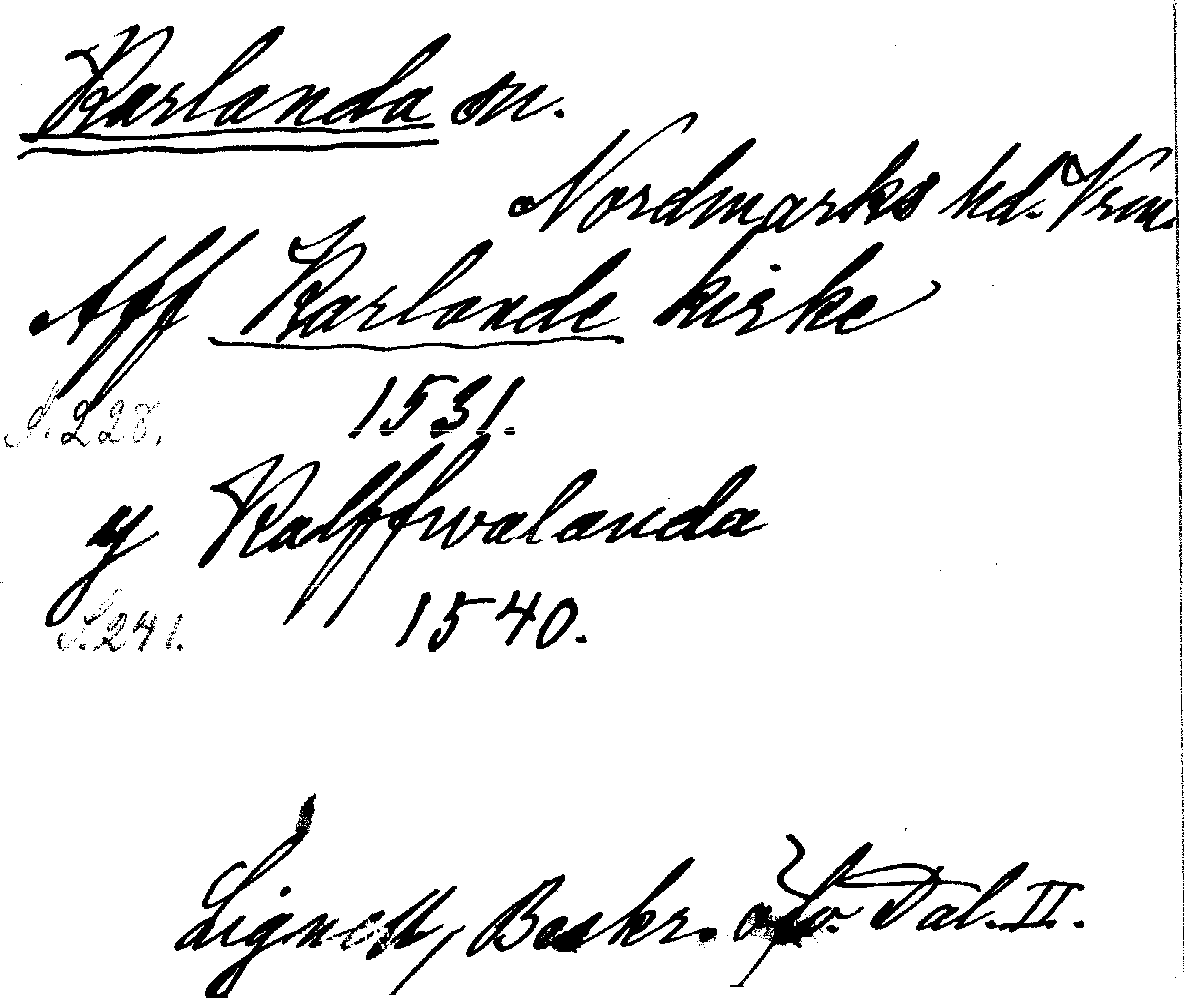 Karlanda sn.
Nordmarks hd. Vrm.
Aff Karlande kirke
S. 228. 1531.
y Kalffwalanda
S. 241. 1540.
Lignell, Beskr. öfv. Dal. II.